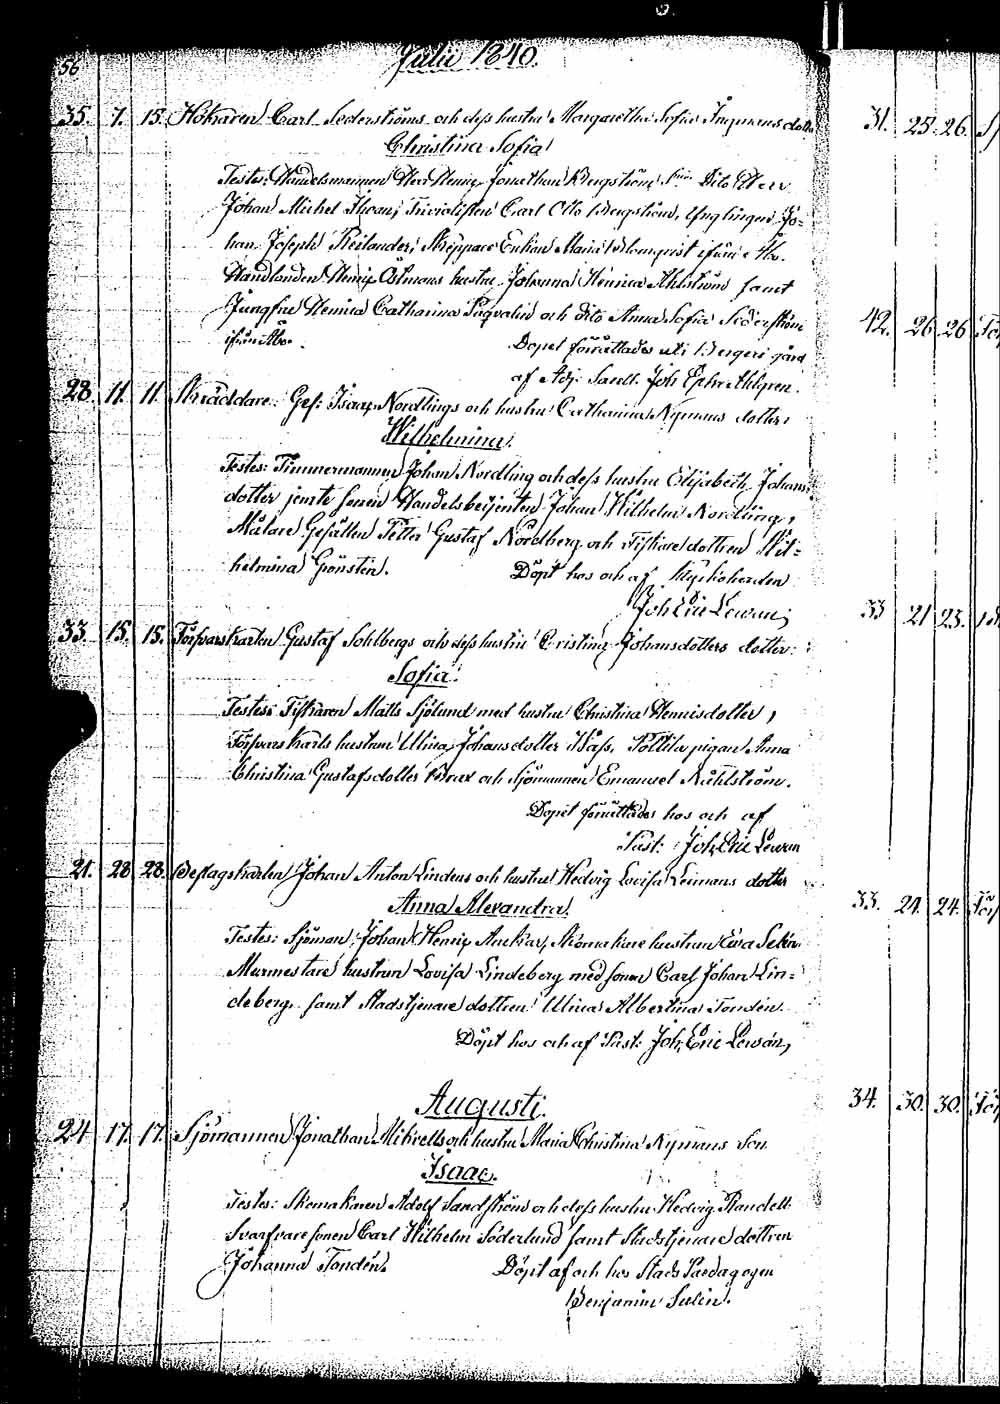 56
Julii 1840.
35. 7. 15. Hökaren Carl Sederströms och dess hustru Margaretha Sofia Ingmans dotter
Christina Sofia
Testes: Handelsmannen Herr Henric Jonathan Bergström, Dito Herr
Johan Michel Trivialisten Carl Otto Bergström, Ynglingen Jo-
han Joseph Reilander, Skeppare Enkan Maria Blomqvist ifrån Åbo.
Handlanden Henric Östmans hustru Johanna Henrica Ahlström samt
Jungfru Henrica Catharina och dito Anna Sofia Sederström
ifrån Åbo.
Dopet förrättades uti Bergers gård
af Adj: Joh Ephr Ahlgren.
28. 11. 11. Skräddare Ges: Isaac Nordlings och hustru Catharina Nymans dotter
Wilhelmina.
Testes: Timmermannen Johan Nordling och dess hustru Elisabeth Johans-
dotter jemte sonen Handelsbetjenten Johan Wilhelm Nordling,
Målare Gesällen Petter Gustaf Nordberg och Fiskare dottren Wil-
helmina Grönsten.
Döpt hos och af Kyrkoherden
Joh Eric Lewan,
33. 15. 15. Försvarskarlen Gustaf Sohlbergs och dess hustru Cristina Johansdotters dotter
Sofia.
Testes: Fiskaren Matts Sjölund med hustru Christina Henricsdotter,
Försvars Karls hustrun Ulrica Johansdotter Båss, Pottila pigan Anna
Christina Gustafsdotter Brax och Sjömannen Emanuel Ruhlström.
Dopet förrättades hos och af
Past: Joh Eric Lewan
21. 28. 28. Beslagskarlen Johan Anton Lindens och hustru Hedvig Lovisa Leimans dotter
Anna Alexandra.
Testes: Sjöman Johan Henric Ankar, Skomakare hustrun Eva Selin
Murmestare hustrun Lovisa Lindeberg med sonen Carl Johan Lin-
deberg samt Stadstjenare dottren Ulrica Albertina Tondén.
Döpt hos och af Past: Joh: Eric Lewan,
Augusti.
24 17. 17. Sjömannen Jonathan Mikvells och hustru Maria Christina Nymans Son
Isaac.
Testes: Skomakaren Adolf Sandström och dess hustru Hedvig Randell
Svarfvare sonen Carl Wilhelm Söderlund samt Stadstjenare dottren
Johanna Tondén.
Döpt af och hos Stads Paedagogen
Benjamin Salin.
31. 25. 26.
42. 26 26
33 21 23.
33. 24. 24.
34. 30. 30.